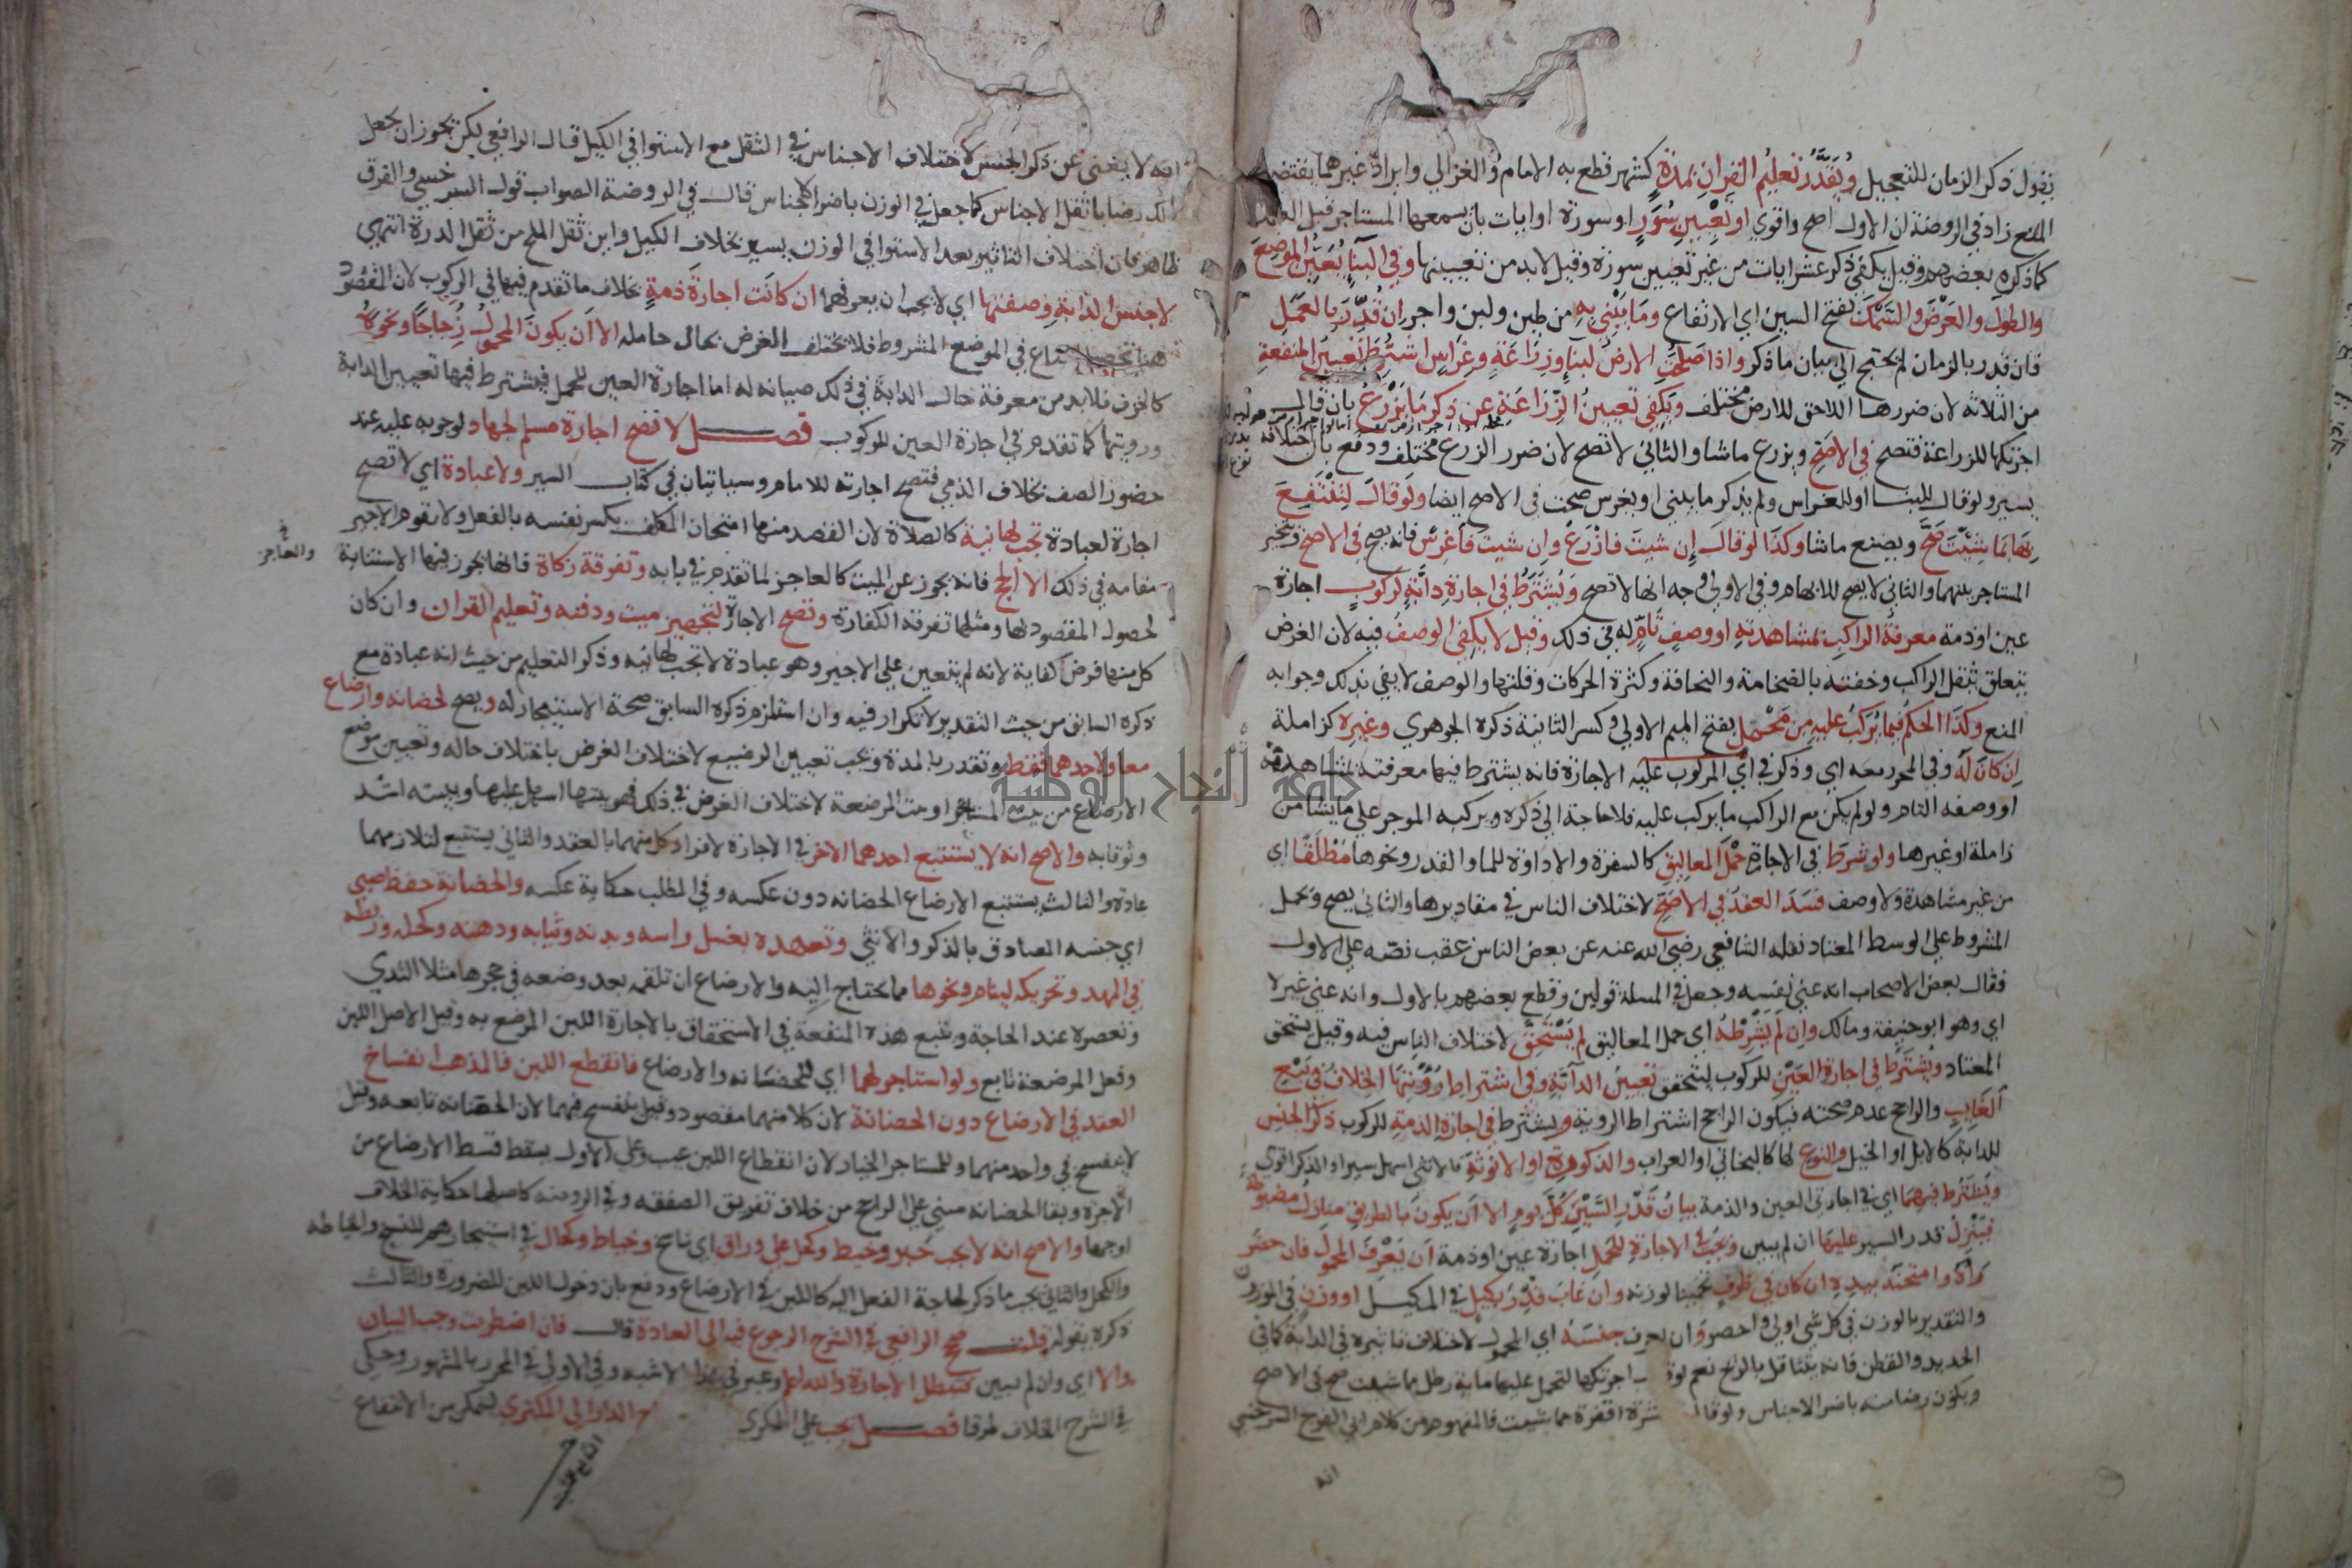 يقول ذكر الزمان للتعجيل ويقدر تعليم القران بمدة كشهر قطع به الامام والغزالي وايراد غيرهما يقتضي
المنع زاد في الروضة ان الاول اصح واقوي او تعيين سور او سورة او ايات بان يسمعها المستاجر قبل العقد
كما ذكره بعضهم وقيل يكفي ذكر عشر ايات من غير تعيين سورة وقيل لا بد من تعيينها وفي البنا يعين الموضع
والطول والعرض والسمك بفتح السين اي الارتفاع وما يبني به من طين ولبن واجر ان قدر بالعمل
فان قدر بالزمان لم يحتج الي بيان ما ذكر واذا صلحت الارض لبنا وزراعة وغراس اشترط تعيين المنفعة
من الثلاثة لان ضررها اللاحق للارض مختلف ويكفي تعيين الزراعة عن ذكر ما يزرع بان قال
اجرتكها للزراعة فتصح في الاصح ويزرع ماشا والثاني لا تصح لان ضرر الزرع مختلف ودفع بان اختلافه
يسير ولو قال للبنا او للغراس ولم يذكر ما يبني او يغرس صحت في الاصح ايضا ولو قال لتنتفع
بها بما شيت صح ويصنع ماشا وكذا لو قال ان شيت فازرع وان شيت فاغرس فانه يصح في الاصح ويتخير
المستاجر بينهما والثاني لا يصح للابهام وفي الاولي وجه انها لا تصح ويشترط في اجارة دابة لركوب اجارة
عين او ذمة معرفة الراكب بمشاهدته او وصف تام له في ذلك وقيل لا يكفي الوصف فيه لان الغرض
يتعلق بثقل الراكب وخفته بالضخامة والنحافة وكثرة الحركات وقلتها والوصف لا يفي بذلك وجوابه
المنع وكذا الحكم فيما يركب عليه من محمل بفتح الميم الاولي وكسر الثانية ذكره الجوهري وغيره كزاملة
ان كان له وفي المحرر معه اي وذكر في اي المركوب عليه الاجارة فانه يشترط فيها معرفته بمشاهدته
او وصفه التام ولو لم يكن مع الراكب ما يركب عليه فلا حاجة الي ذكره ويركبه الموجر علي ما يشا من
زاملة او غيرها ولو شرط في الاجارة حمل المعاليق كالسفرة والاداوة للما والقدر ونحوها مطلقا اي
من غير مشاهدة ولا وصف فسد العقد في الاصح لاختلاف الناس في مقاديرها والثاني يصح ويحمل
المشروط علي الوسط المعتاد نقله الشافعي رضي الله عنه عن بعض الناس عقب نصه علي الاول
فقال بعض الاصحاب انه عني نفسه وجعل في المسلة قولين وقطع بعضهم بالاول وانه عني غيره لا
اي وهو ابو حنيفة ومالك وان لم يشرطه اي حمل المعاليق لم يستحق لاختلاف الناس فيه وقيل يستحق
المعتاد ويشترط في اجارة العين للركوب ليتحقق تعيين الدابة وفي اشتراط رؤيتها الخلاف في بيع
الغايب والراجح عدم صحته فيكون الراجح اشتراط الروية ويشترط في اجارة الذمة للركوب ذكر الجنس
للدابة كالابل او الخيل والنوع لها كالبخاتي او العراب والذكورة او الانوثة فالانثي اسهل سيرا والذكر اقوي
ويشترط فيهما اي في اجارتي العين والذمة بيان قدر السير كل يوم الا ان يكون بالطريق منازل مضبوطة
فينزل قدر السير عليها ان لم يبين ويجب في الاجارة للحمل اجارة عين او ذمة ان يعرف المحمول فان حضر
رآه وامتحنه بيده ان كان في ظرف تخمينا لوزنه وان غاب قدر بكيل في المكيل او وزن في الموزون
والتقدير بالوزن في كل شي اولي واحصر وان يعرف جنسه اي المحمول لاختلاف تاثيره في الدابة كما في
الحديد والقطن فانه يتثاقل بالريح نعم لو قال اجرتكها لتحمل عليها ماية رطل مما شيت صح في الاصح
ويكون رضا منه باضر الاجناس ولو قال عشرة اقفزة مما شيت فالمفهوم من كلام ابي الفرج السرخسي
انه
انه لا يغني عن ذكر الجنس لاختلاف الاجناس في الثقل مع الاستوا في الكيل قال الرافعي لكن يجوز ان يجعل
ذلك رضا باثقل الاجناس كما جعل في الوزن باضر الاجناس قال في الروضة الصواب قول السرخسي والفرق
ظاهر فان اختلاف التاثير بعد الاستوا في الوزن يسير بخلاف الكيل واين ثقل الملح من ثقل الدرة انتهي
لا جنس الدابة وصفتها اي لا يجب ان يعرفهما ان كانت اجارة ذمة بخلاف ما تقدم فيها في الركوب لان المقصود
هنا تحصيل المتاع في الموضع المشروط فلا يختلف الغرض بحال حامله الا ان يكون المحمول زجاجا ونحوه
كالخزف فلا بد من معرفة حال الدابة في ذلك صيانة له اما اجارة العين للحمل فيشترط فيها تعيين الدابة
ورويتها كما تقدم في اجارة العين للركوب فصل لا تصح اجارة مسلم لجهاد لوجوبه عليه عند
حضور الصف بخلاف الذمي فتصح اجارته للامام وسياتيان في كتاب السير ولا عبادة اي لا تصح
اجارة لعبادة تجب لها نية كالصلاة لان القصد منها امتحان المكلف بكسر نفسه بالفعل ولا يقوم الاجير
مقامه في ذلك الا الحج فانه يجوز عن الميت كالعاجز لما تقدم في بابه وتفرقة زكاة فانها يجوز فيها الاستنابة
والعاجز
لحصول المقصود بها ومثلها تفرقة الكفارة وتصح الاجارة لتجهيز ميت ودفنه وتعليم القران وان كان
كل منها فرض كفاية لانه لم يتعين علي الاجير وهو عبادة لا تجب لها نيه وذكر التعليم من حيث انه عبادة مع
ذكره السابق من حيث التقدير لا تكرار فيه وان استلزم ذكره السابق صحة الاستيجار له ويصح لحضانه وارضاع
معا ولاحدهما فقط وتقدر بالمدة ويجب تعيين الرضيع لاختلاف الغرض باختلاف حاله وتعيين موضع
الارضاع من بيت المستاجر او بيت المرضعة لاختلاف الغرض في ذلك فهو ببيتها اسهل عليها وببيته اشد
وثوقا به والاصح انه لا يستتبع احدهما الاخر في الاجارة لافراد كل منهما بالعقد والثاني يستتبع لتلازمهما
عادة والثالث يستتبع الارضاع الحضانه دون عكسه وفي المطلب حكاية عكسه والحضانة حفظ صبي
اي جنسه الصادق بالذكر والانثي وتعهده بغسل راسه وبدنه وثيابه ودهنه وكحله وربطه
في المهد وتحريكه لينام ونحوها مما يحتاج اليه والارضاع ان تلقمه بعد وضعه في حجرها مثلا الثدي
وتعصره عند الحاجة ويتبع هذه المنفعة في الاستحقاق بالاجارة اللبن المرضع به وقيل الاصل اللبن
وفعل المرضعة تابع ولو استاجر لهما اي للحضانه والارضاع فانقطع اللبن فالمذهب انفساخ
العقد في الارضاع دون الحضانة لان كلا منهما مقصود وقيل ينفسخ فيهما لان الحضانه تابعه وقيل
لا ينفسخ في واحد منهما وللمستاجر الخيار لان انقطاع اللبن عيب وعلي الاول يسقط قسط الارضاع من
الاجرة وبقا الحضانه مبني علي الراجح من خلاف تفريق الصفقه وفي الروضه كاصلها حكاية الخلاف
اوجها والاصح انه لا يجب حبر وخيط وكحل علي وراق اي ناسخ وخياط وكحال في استيجارهم للنسخ والخياطه
والكحل والثاني يجب ما ذكر لحاجة الفعل اليه كاللبن في الارضاع ودفع بان دخول اللبن للضرورة والثالث
ذكره بقوله قلت صحح الرافعي في الشرح الرجوع فيه الي العادة قال فان اضطربت وجب البيان
والا اي وان لم يبين فتبطل الاجارة والله اعلم وعبر في هذا بالاشبه وفي الاولي في المحرر بالمشهور وحكي
في الشرح الخلاف طرقا فصل يجب علي المكري الدار الي المكتري ليتمكن من الانتفاع